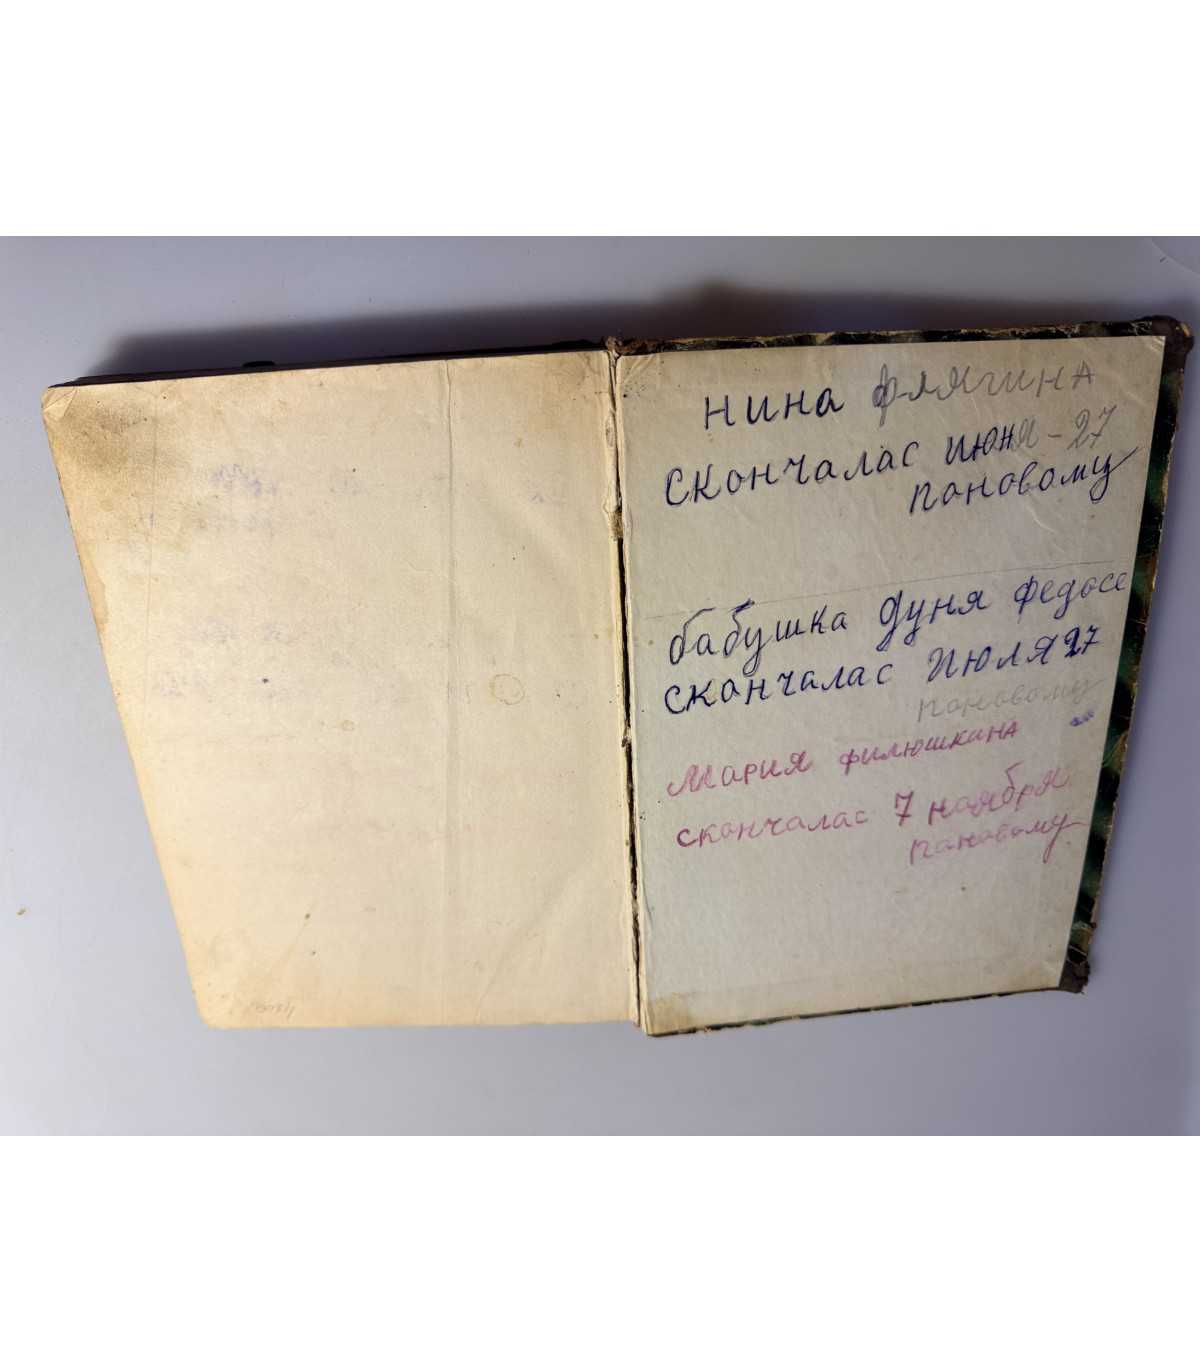 нина флягина
скончалас июня-27
пановому
бабушка дуня федосе
скончалас июля 27
пановому
мария филюшкина
скончалас 7 ноября
пановому